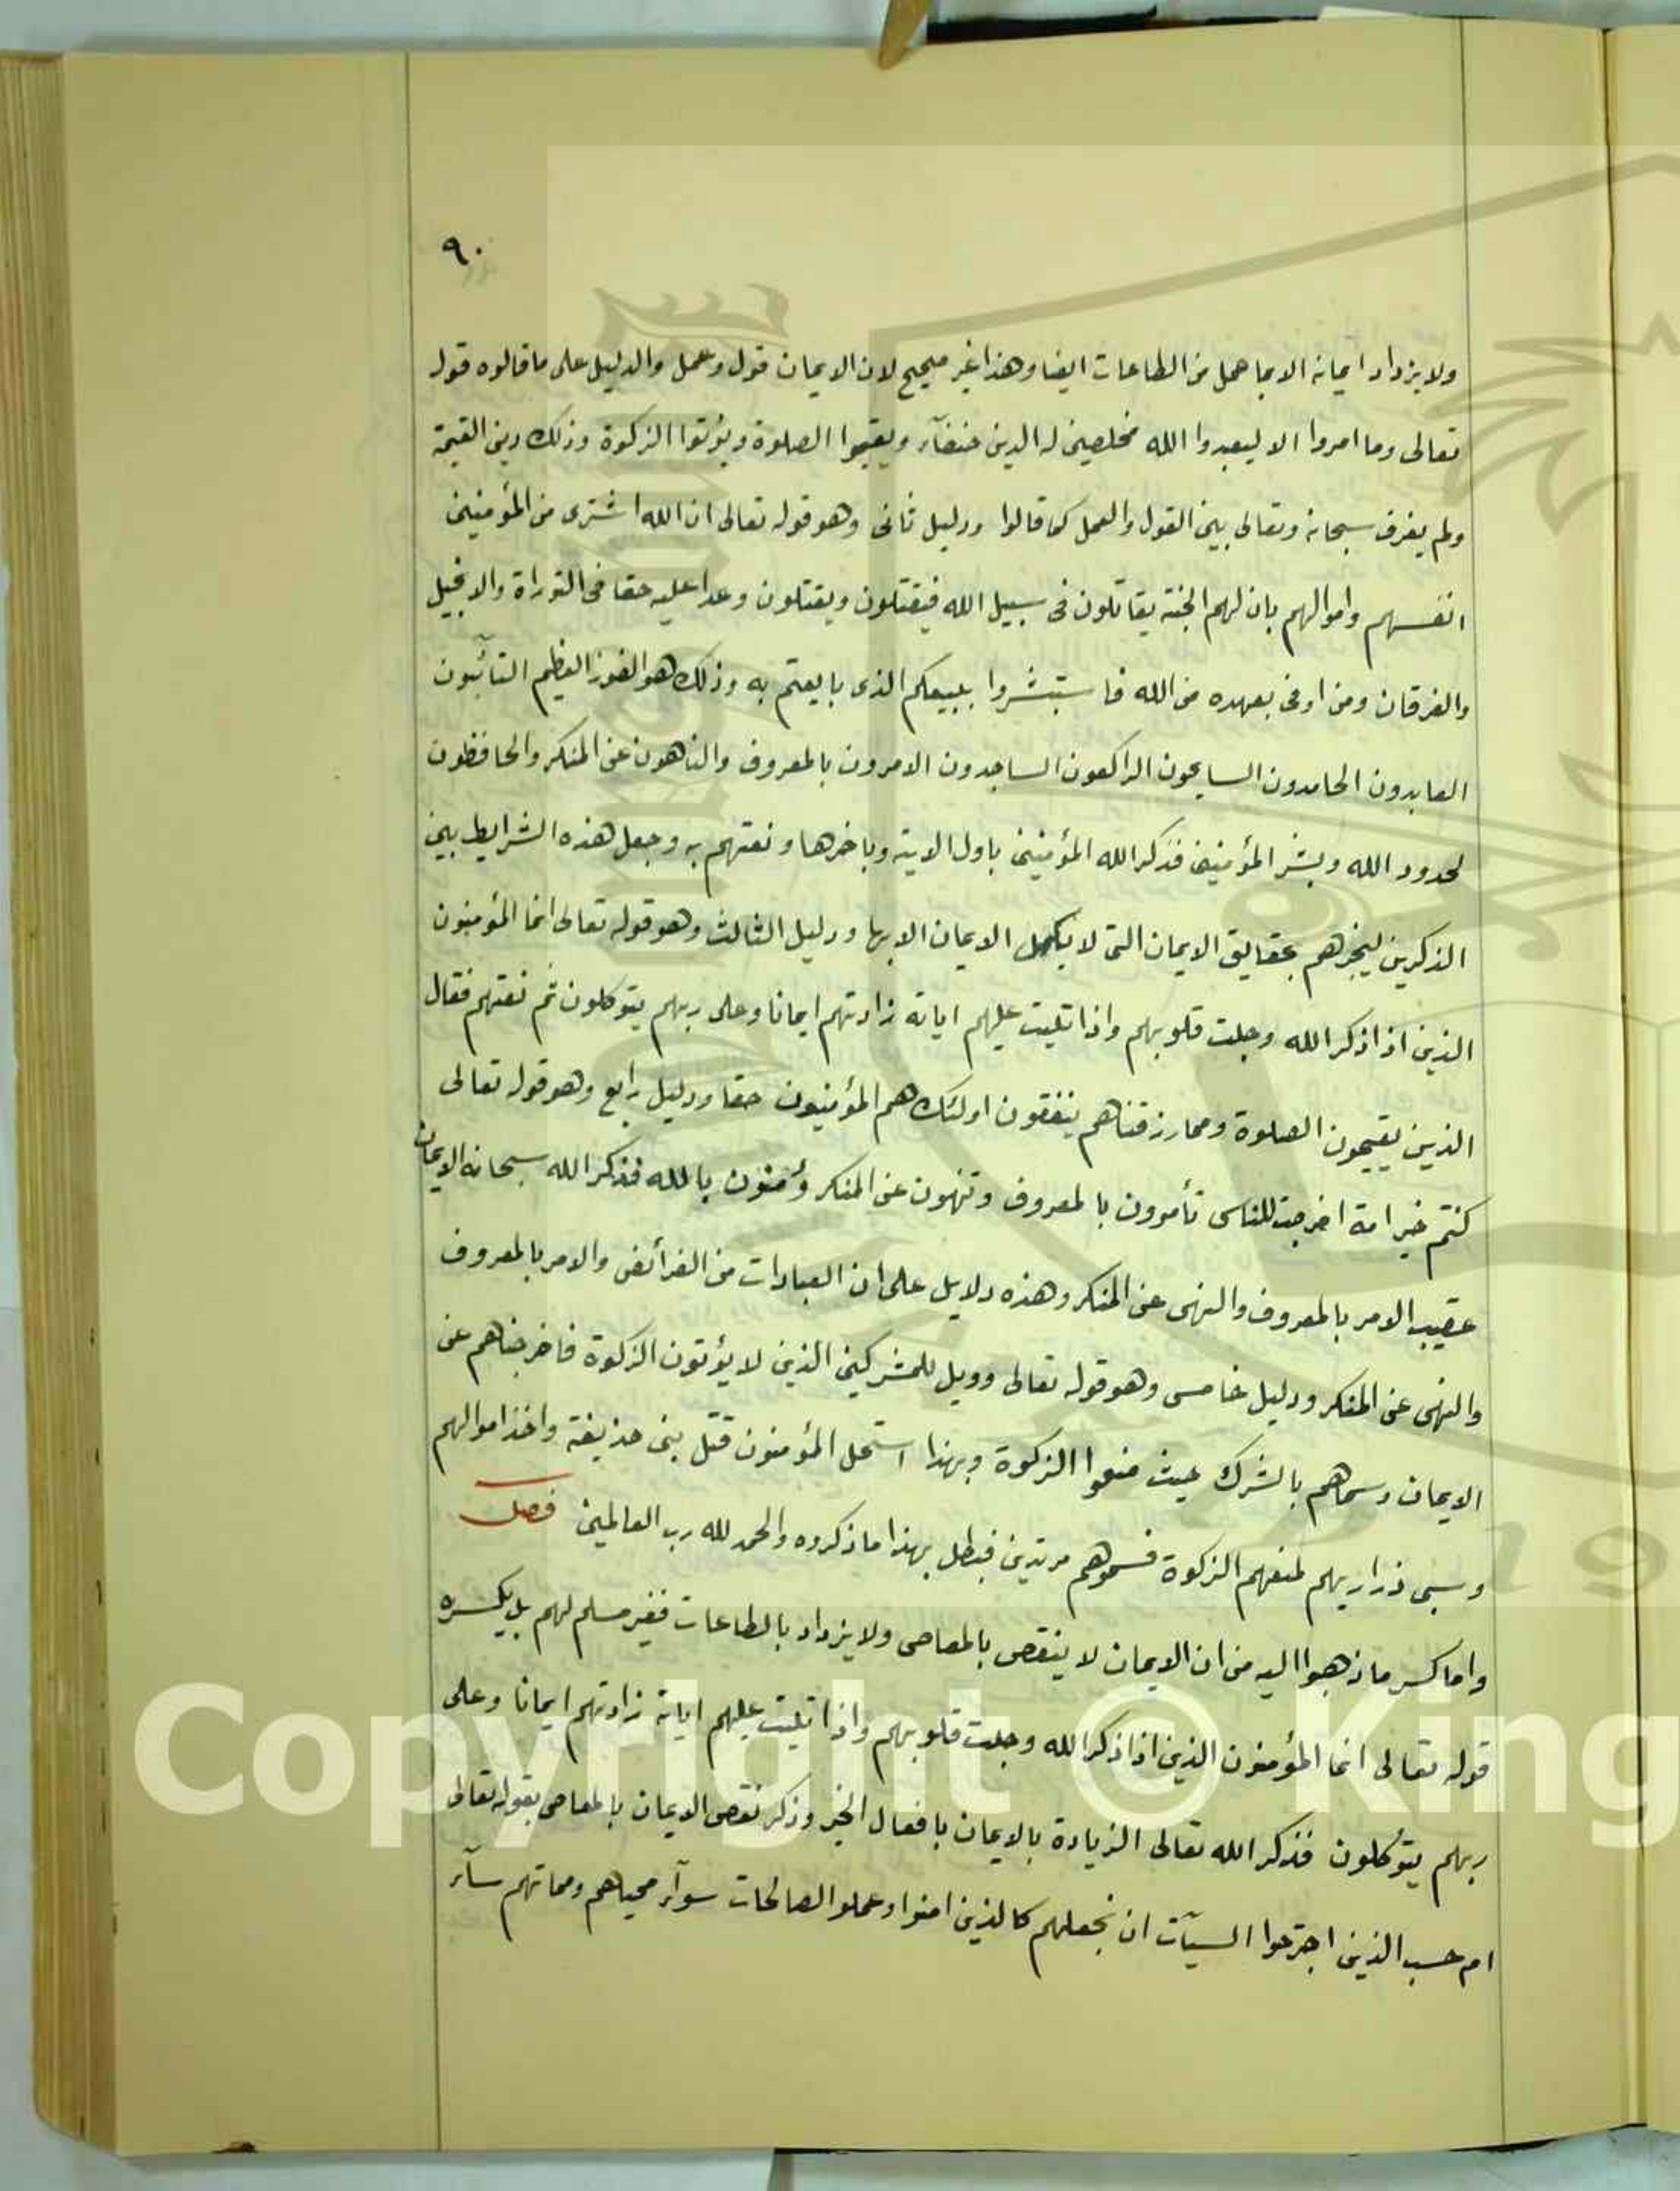 ٩٠
ولا يزداد ايمانه الا بما عمل من الطاعات ايضا وهذا غير صحيح لان الايمان قول وعمل والدليل على ما قالوه قول
تعالى وما امروا الا ليعبدوا الله مخلصين له الدين حنفآء ويقيموا الصلوة ويؤتوا الزكوة وذلك دين القيمة
ولم يفرق سبحانه وتعالى بين القول والعمل كما قالوا ودليل ثانى وهو قوله تعالى ان الله اشترى من المؤمنين
انفسهم واموالهم بان لهم الجنة يقاتلون فى سبيل الله فيقتلون ويقتلون وعدا عليه حقا فى التوراة والانجيل
والفرقان ومن اوفى بعهده من الله فاستبشروا ببيعكم الذى بايعتم به وذلك هو الفوز العظيم التآئبون
العابدون الحامدون السايحون الراكعون الساجدون الامرون بالمعروف والناهون عن المنكر والحافظون
لحدود الله وبشر المؤمنين فذكر الله المؤمنين باول الاية وباخرها ونعتهم به وجعل هذه الشرايط بين
الذكرين ليخبرهم بحقايق الايمان التى لا يكمل الايمان الا بها ودليل الثالث وهو قوله تعالى انما المؤمنون
الذين اذا ذكر الله وجلت قلوبهم واذا تليت عليهم اياته زادتهم ايمانا وعلى ربهم يتوكلون ثم نعتهم فقال
الذين يقيمون الصلوة ومما رزقناهم ينفقون اولئك هم المؤمنون حقا ودليل رابع وهو قوله تعالى
كنتم خير امة اخرجت للناس تأمرون بالمعروف وتنهون عن المنكر وتؤمنون بالله فذكر الله سبحانه الايمان
عقيب الامر بالمعروف والنهى عن المنكر وهذه دلايل على ان العبادات من الفرآئض والامر بالمعروف
والنهى عن المنكر ودليل خامس وهو قوله تعالى وويل للمشركين الذين لا يؤتون الزكوة فاخرجناهم عن
الايمان وسماهم بالشرك بحيث منعوا الزكوة وبهذا استحل المؤمنون قتل بنى حذيفة واخذ اموالهم
وسبى ذراريهم لمنعهم الزكوة فسموهم مرتدين فبطل بهذا ما ذكروه والحمد لله رب العالمين فصل
واما كسر ما ذهبوا اليه من ان الايمان لا ينقص بالمعاصى ولا يزداد بالطاعات فغير مسلم لهم بل يكسره
قوله تعالى انما المؤمنون الذين اذا ذكر الله وجلت قلوبهم واذا تليت عليهم اياته زادتهم ايمانا وعلى
ربهم يتوكلون فذكر الله تعالى الزيادة بالايمان بافعال الخير وذكر نقص الايمان بالمعاصى بقوله تعالى
ام حسب الذين اجترحوا السيآت ان نجعلهم كالذين امنوا وعملو الصالحات سوآء محياهم ومماتهم سآء
Copyright © King